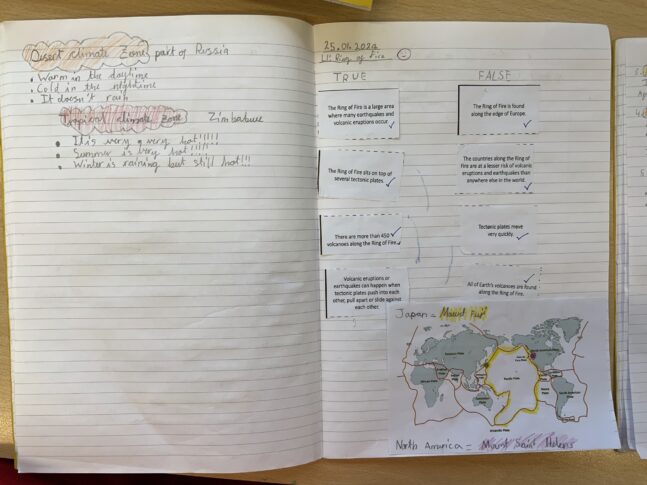 Desert climate Zone part of Russia
• Warm in the daytime
• Cold in the nightime
• It doesn't rain
Tropical climate zone Zimbabwe
• It is very, very hot!!!!!
• Summer is very hot!!!!!
• Winter is raining but still hot!!!
LI: Ring of Fire
TRUE
The Ring of Fire is a large area
where many earthquakes and
volcanic eruptions occur.
The Ring of Fire sits on top of
several tectonic plates.
There are more than 450
volcanoes along the Ring of Fire.
Volcanic eruptions or
earthquakes can happen when
tectonic plates push into each
other, pull apart or slide against
each other.
FALSE
The Ring of Fire is found
along the edge of Europe.
The countries along the Ring of
Fire are at a lesser risk of volcanic
eruptions and earthquakes than
anywhere else in the world.
Tectonic plates move
very quickly.
All of Earth's volcanoes are found
along the Ring of Fire.
Japan = Mount Fuji
Eurasian Plate
African Plate
Pacific Plate
Antarctic Plate
North America = Mount Saint Helens